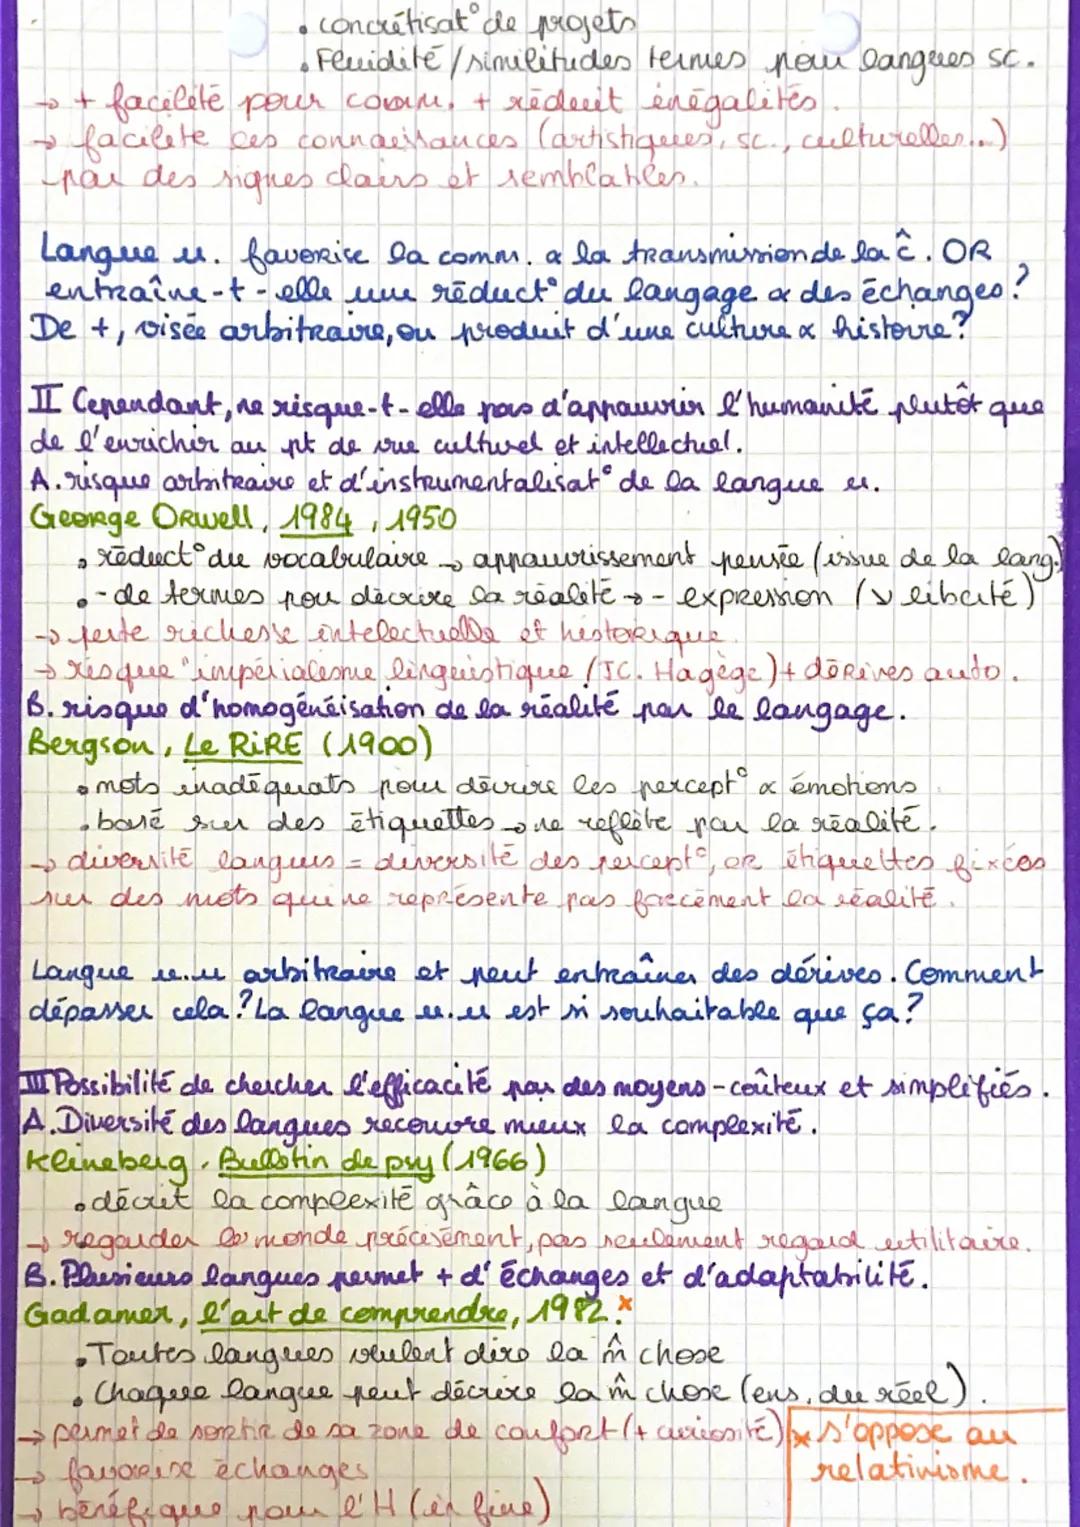 • concrétisat° de projets
• Fluidité / similitudes termes pour langues sc.
→ + facilité pour comm. + réduit inégalités.
→ facilite les connaissances (artistiques, sc., culturelles...)
par des signes clairs et semblables.
Langue u. favorise la comm. & la transmission de la ĉ. OR
entraîne-t-elle une réduct° du langage & des échanges ?
De +, visée arbitraire, ou produit d'une culture & histoire ?
II Cependant, ne risque-t-elle pas d'appauvrir l'humanité plutôt que
de l'enrichir au pt de vue culturel et intellectuel.
A. risque arbitraire et d'instrumentalisat° de la langue u.
George ORwell, 1984, 1950
• réduct° du vocabulaire → appauvrissement pensée (issue de la lang.)
• - de termes pour décrire la réalité → - expression (↘ liberté)
→ perte richesse intelectuelle et historique.
→ risque "impérialisme linguistique (JC. Hagège) + dérives auto.
B. risque d'homogénéisation de la réalité par le langage.
Bergson, Le RIRE (1900)
• mots inadéquats pour décrire les percept° & émotions
• basé sur des étiquettes → ne reflète pas la réalité.
→ diversité langues = diversité des percept°, or étiquettes fixées
sur des mots qui ne représente pas forcément la réalité.
Langue u.u arbitraire et peut entraîner des dérives. Comment
dépasser cela ? La langue u.u est si souhaitable que ça ?
III Possibilité de chercher l'efficacité par des moyens - coûteux et simplifiés.
A. Diversité des langues recouvre mieux la complexité.
Kleineberg, Bulletin de psy (1966)
• décrit la complexité grâce à la langue
→ regarder le monde précisément, pas seulement regard utilitaire.
B. Plusieurs langues permet + d'échanges et d'adaptabilité.
Gadamer, l'art de comprendre, 1982.*
• Toutes langues veulent dire la m̂ chose
• Chaque langue peut décrire la m̂ chose (ens. du réel).
→ permet de sortir de sa zone de confort (+ curiosité)
→ favorise échanges
→ bénéfique pour l'H (in fine)
* s'oppose au
relativisme.